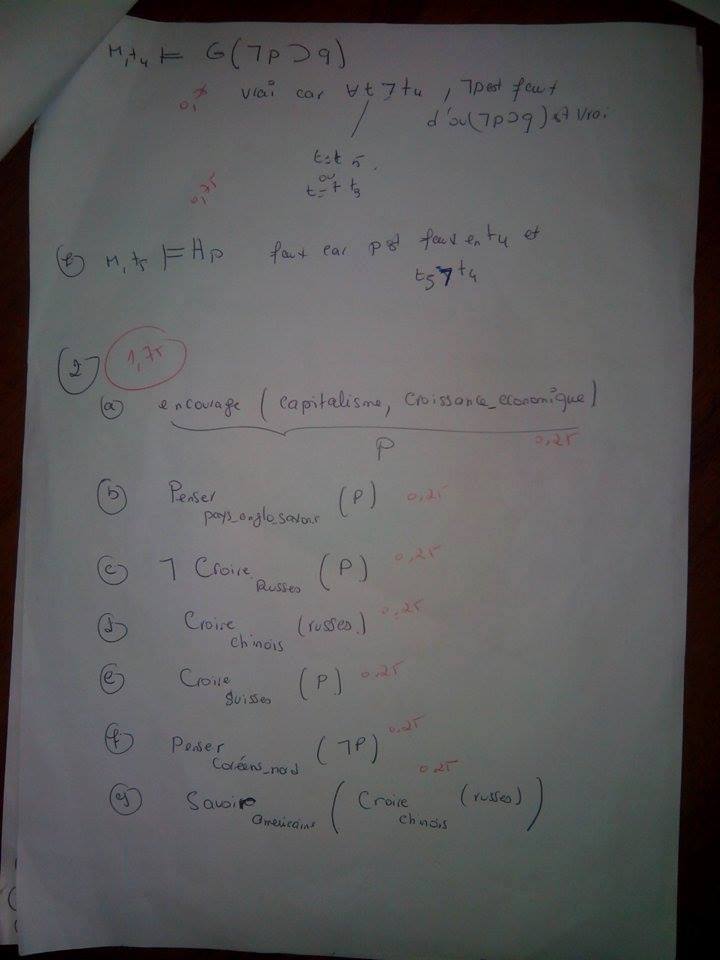 M, t4 ⊨ G(¬p ⊃ q)
vrai car ∀t > t4, ¬p est faux
d'où (¬p ⊃ q) est vrai
t = t5
ou
M, t5 ⊨ Hp faux car p est faux en t4 et
t5 > t4
2 1,75
(a) encourage (capitalisme, croissance_economique)
P 0,25
(b) Penser pays_anglo_saxons (P) 0,25
(c) ¬ Croire Russes (P) 0,25
(d) Croire chinois (russes) 0,25
(e) Croire suisses (P) 0,25
(f) Penser Coréens_nord (¬P) 0,25
0,25
(g) Savoir americains (Croire chinois (russes))